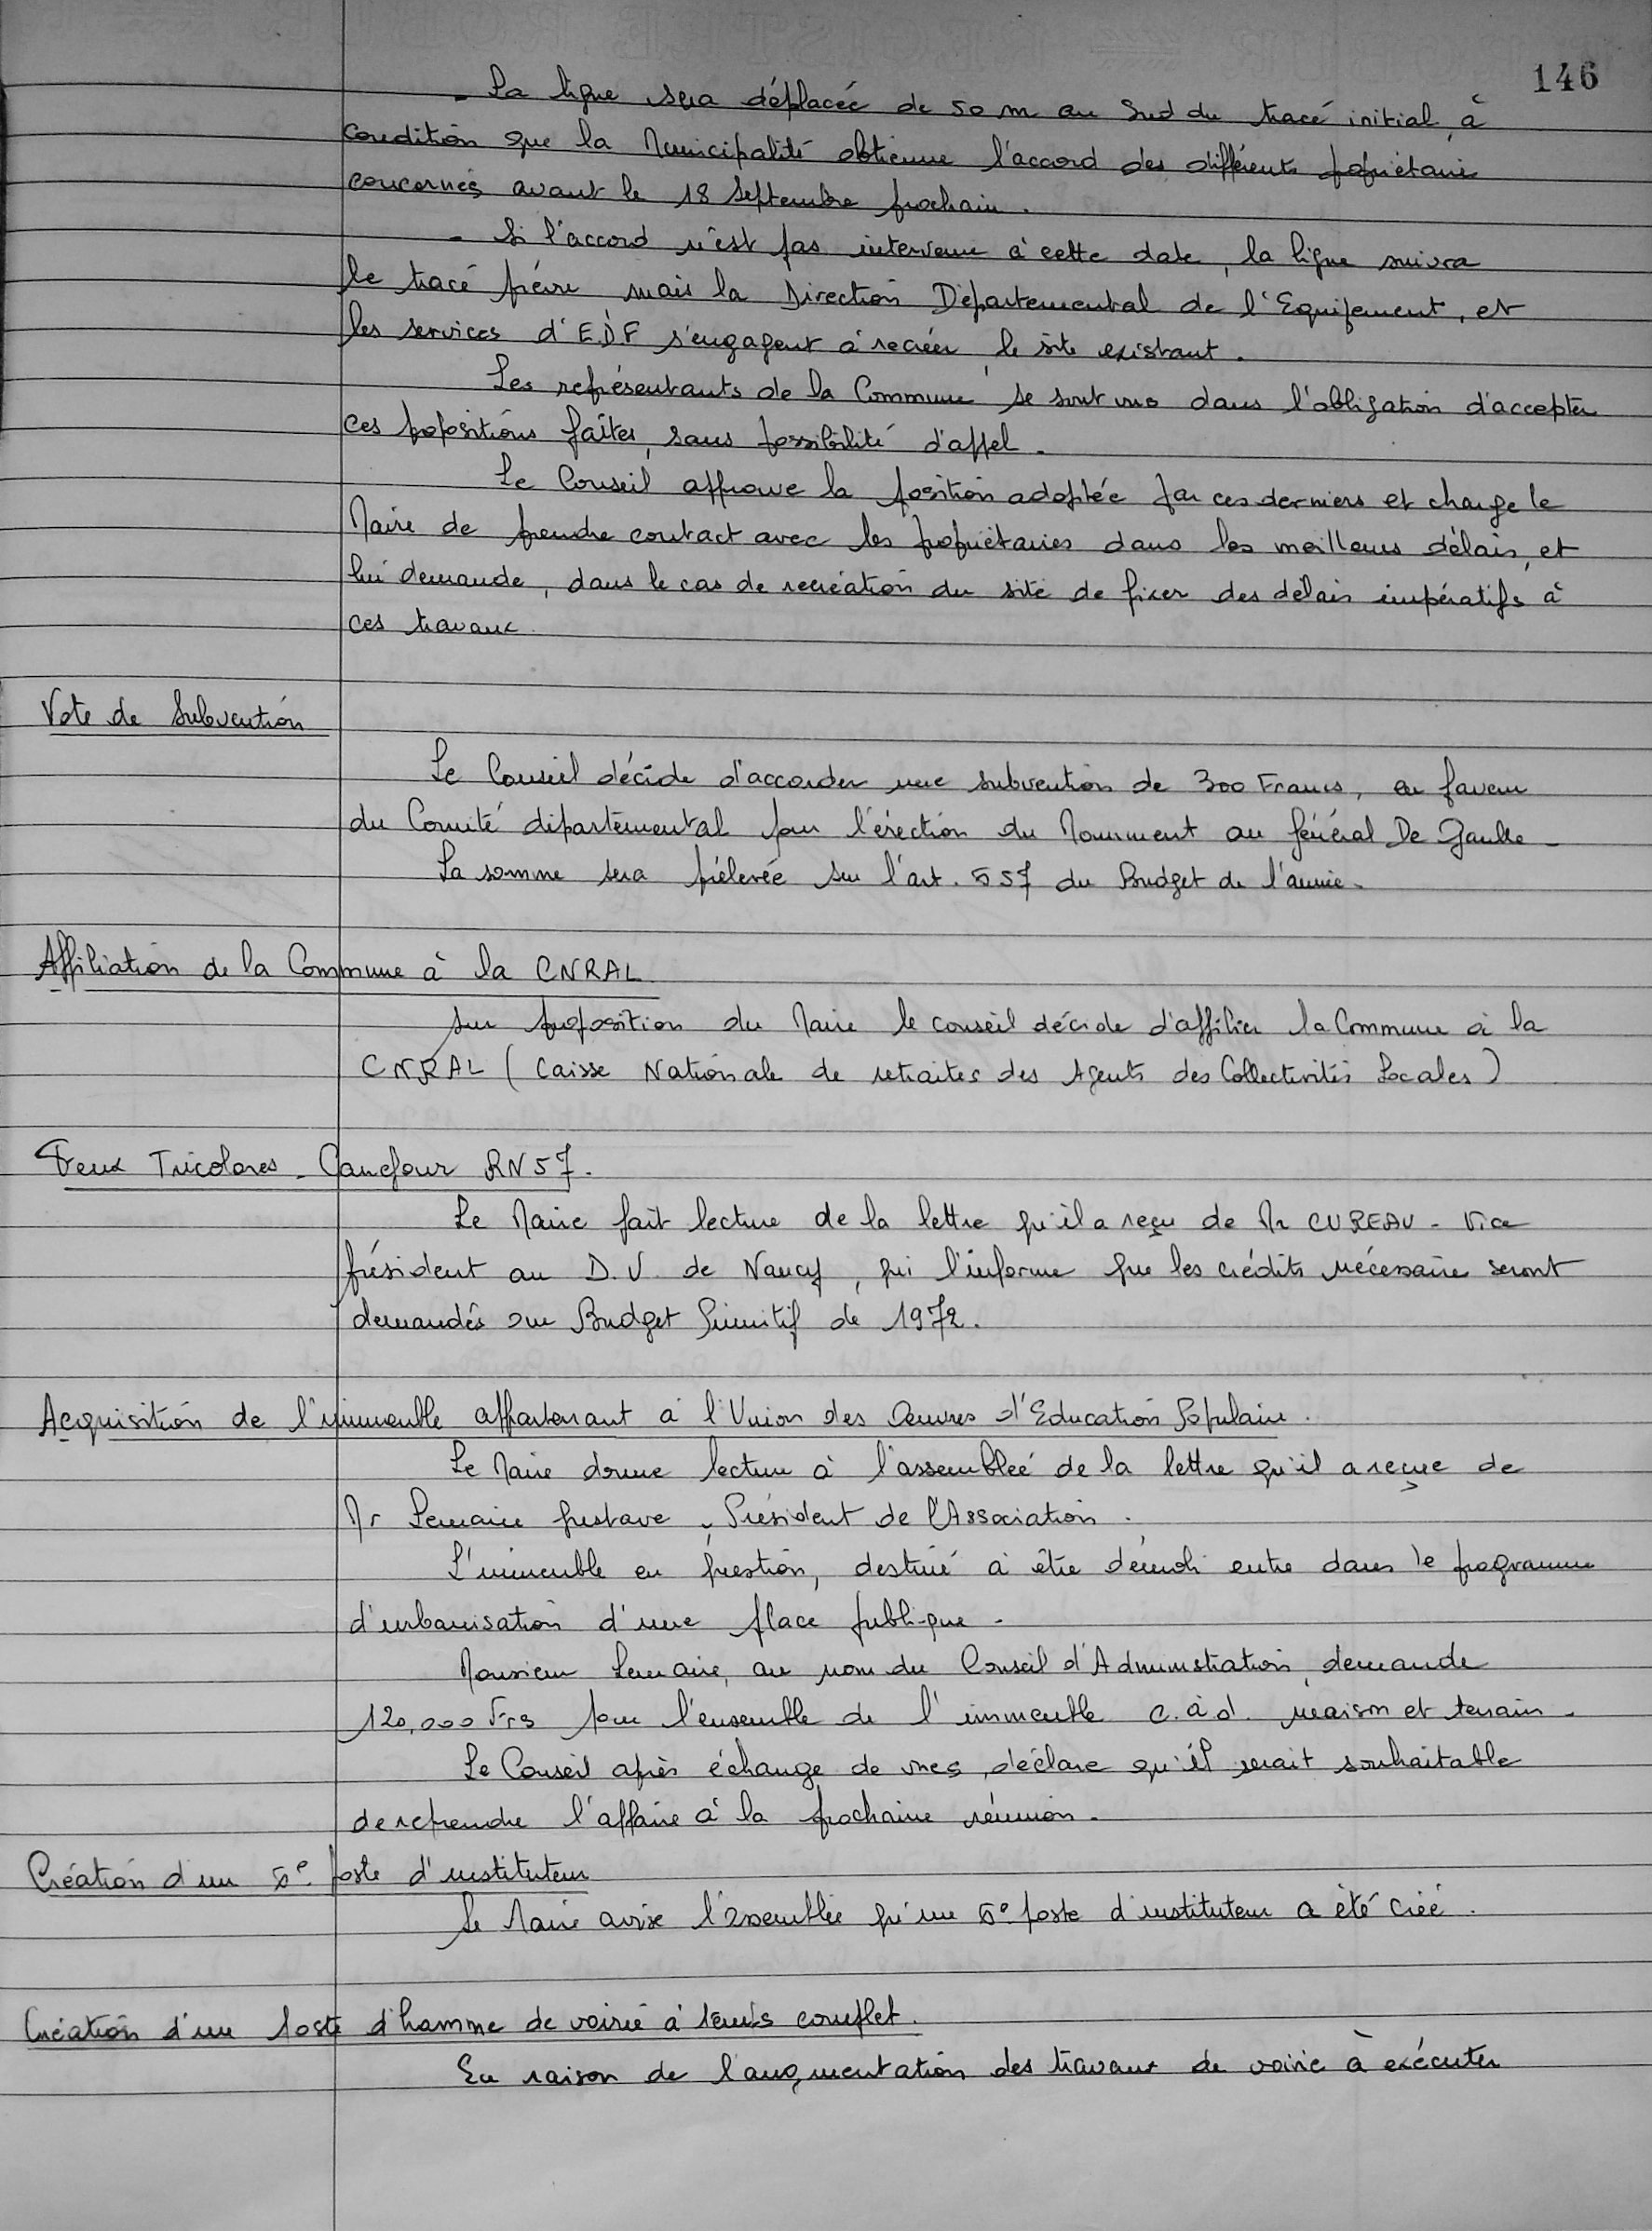 146
- La ligne sera déplacée de 50 m au Sud du tracé initial, à
condition que la Municipalité obtienne l'accord des différents propriétaires
concernés avant le 18 Septembre prochain.
- Si l'accord n'est pas intervenu à cette date, la ligne suivra
le tracé prévu mais la Direction Départemental de l'Equipement, et
les services d'E.D.F s'engagent à recréer le site existant.
Les représentants de la Commune se sont vus dans l'obligation d'accepter
ces propositions faites, sans possibilité d'appel.
Le Conseil approuve la position adoptée par ces derniers et charge le
Maire de prendre contact avec les propriétaires dans les meilleurs délais, et
lui demande, dans le cas de recréation du site de fixer des délais impératifs à
ces travaux.
Vote de Subvention
Le Conseil décide d'accorder une subvention de 300 Francs, en faveur
du Comité départemental pour l'érection du Monument au Général De Gaulle -
La somme sera prélevée sur l'art. 657 du Budget de l'année.
Affiliation de la Commune à la CNRAL
Sur proposition du Maire le conseil décide d'affilier la Commune à la
CNRAL (Caisse Nationale de retraites des Agents des Collectivités Locales)
Feux Tricolores - Carrefour RN 57.
Le Maire fait lecture de la lettre qu'il a reçu de Mr CUREAU - Vice
président au D.U. de Nancy, qui l'informe que les crédits nécessaire seront
demandés au Budget Primitif de 1972.
Acquisition de l'immeuble appartenant à l'Union des Oeuvres d'Education Populaire.
Le Maire donne lecture à l'assemblée de la lettre qu'il a reçue de
Mr Lemaire Gustave, Président de l'Association.
L'immeuble en question, destiné à être démoli entre dans le programme
d'urbanisation d'une place publique -
Monsieur Lemaire, au nom du Conseil d'Administration, demande
120,000 Frs pour l'ensemble de l'immeuble c.à.d. maison et terrain -
Le Conseil après échange de vues, déclare qu'il serait souhaitable
de reprendre l'affaire à la prochaine réunion -
Création d'un 5e poste d'instituteur
Le Maire avise l'assemblée qu'un 5e poste d'instituteur a été créé.
Création d'un Poste d'homme de voirie à temps complet.
En raison de l'augmentation des travaux de voirie à exécuter